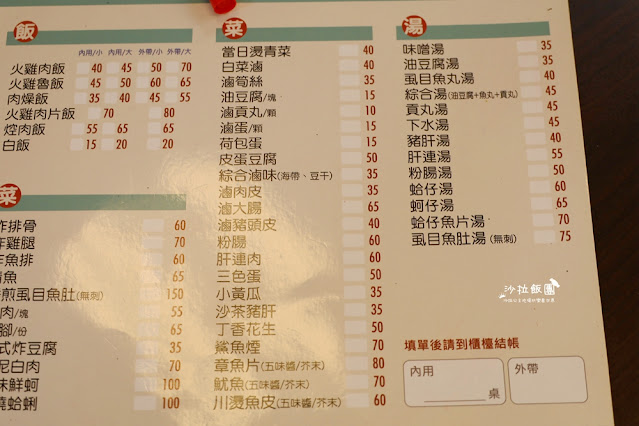 飯
內用/小 內用/大 外帶/小 外帶/大
火雞肉飯 40 45 50 70
火雞魯飯 45 50 60 65
肉燥飯 35 40 45 55
火雞肉片飯 70 80
焢肉飯 55 65 65
白飯 15 20 20
菜
炸排骨 60
炸雞腿 70
炸魚排 60
魚 65
煎虱目魚肚(無刺) 150
肉/塊 55
腳/份 65
式炸豆腐 35
泥白肉 70
味鮮蚵 100
燒蛤蜊 100
菜
當日燙青菜 40
白菜滷 40
滷筍絲 35
油豆腐/塊 10
滷貢丸/顆 10
滷蛋/顆 15
荷包蛋 15
皮蛋豆腐 50
綜合滷味(海帶、豆干) 35
滷肉皮 35
滷大腸 65
滷豬頭皮 40
粉腸 60
肝連肉 60
三色蛋 50
小黃瓜 35
沙茶豬肝 35
丁香花生 50
鯊魚煙 70
章魚片(五味醬/芥末) 80
魷魚(五味醬/芥末) 70
川燙魚皮(五味醬/芥末) 60
湯
味噌湯 35
油豆腐湯 35
虱目魚丸湯 40
綜合湯(油豆腐+魚丸+貢丸) 45
貢丸湯 40
下水湯 45
豬肝湯 40
肝連湯 55
粉腸湯 50
蛤仔湯 65
蚵仔湯 65
蛤仔魚片湯 70
虱目魚肚湯(無刺) 75
沙拉飯團
填單後請到櫃檯結帳
內用 桌
外帶